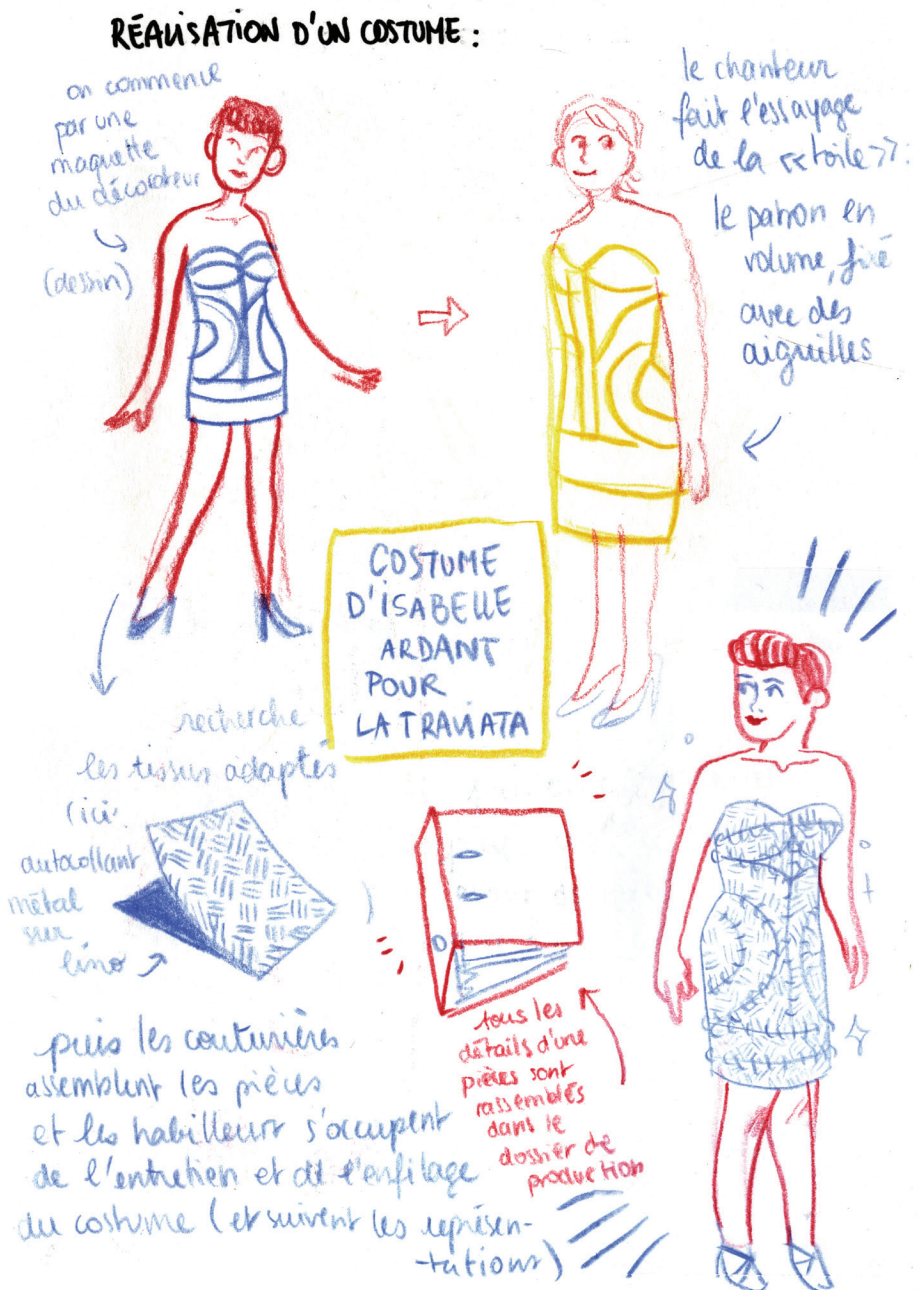 RÉALISATION D'UN COSTUME :
on commence
par une
maquette
du décorateur
(dessin)
le chanteur
fait l'essayage
de la «toile» :
le patron en
volume, fixé
avec des
aiguilles
COSTUME
D'ISABELLE
ARDANT
POUR
LA TRAVIATA
recherche
les tissus adaptés
(ici :
autocollant
métal
sur
lino
)
tous les
détails d'une
pièces sont
rassemblés
dans le
dossier de
production
puis les couturières
assemblent les pièces
et les habilleurs s'occupent
de l'entretien et de l'enfilage
du costume (et suivent les représen-
-tations)